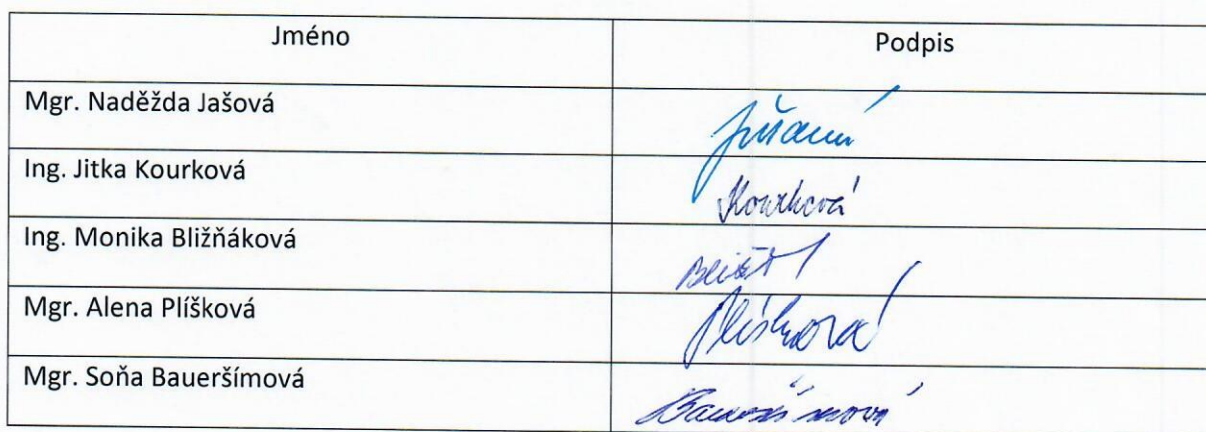 Jméno Podpis
Mgr. Naděžda Jašová
Ing. Jitka Kourková Kourková
Ing. Monika Bližňáková
Mgr. Alena Plíšková Plíšková
Mgr. Soňa Baueršímová Baueršímová